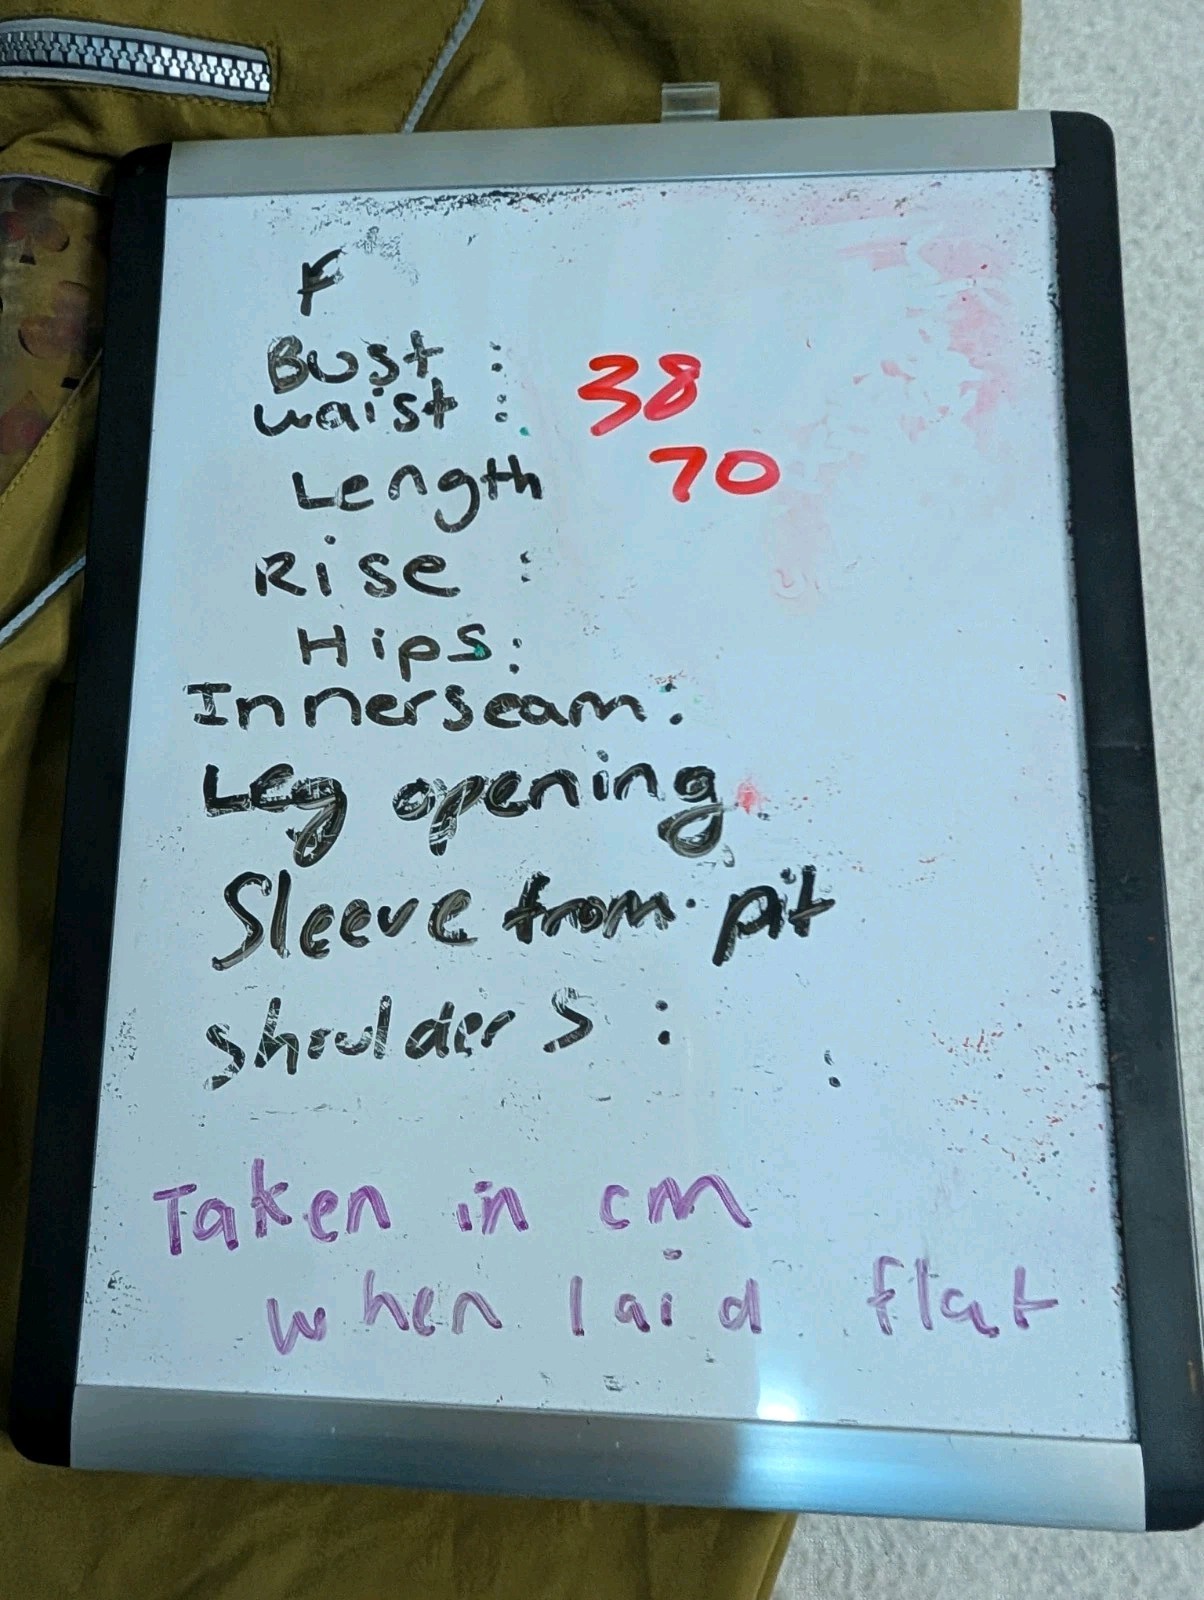 F
Bust :
waist : 38
Length 70
Rise :
Hips:
Innerseam.
Leg opening
Sleeve from pit
Shoulder S :
Taken in cm
when laid flat